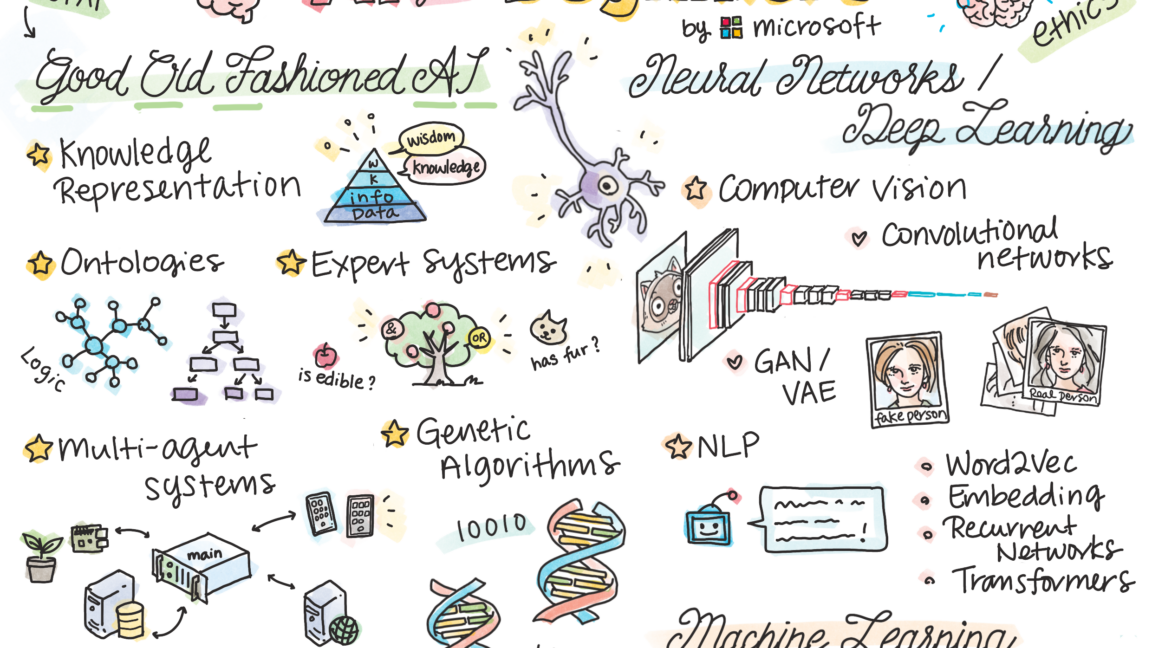 by microsoft
ethics
Good Old Fashioned AI
Neural Networks /
Deep Learning
Knowledge
Representation
wisdom
knowledge
W
K
info
Data
Computer Vision
Convolutional
networks
Ontologies
Expert Systems
Logic
&
OR
is edible?
has fur?
GAN/
VAE
fake person
Real person
Multi-agent
systems
Genetic
Algorithms
NLP
Word2Vec
Embedding
Recurrent
Networks
Transformers
!
10010
main
Machine Learning